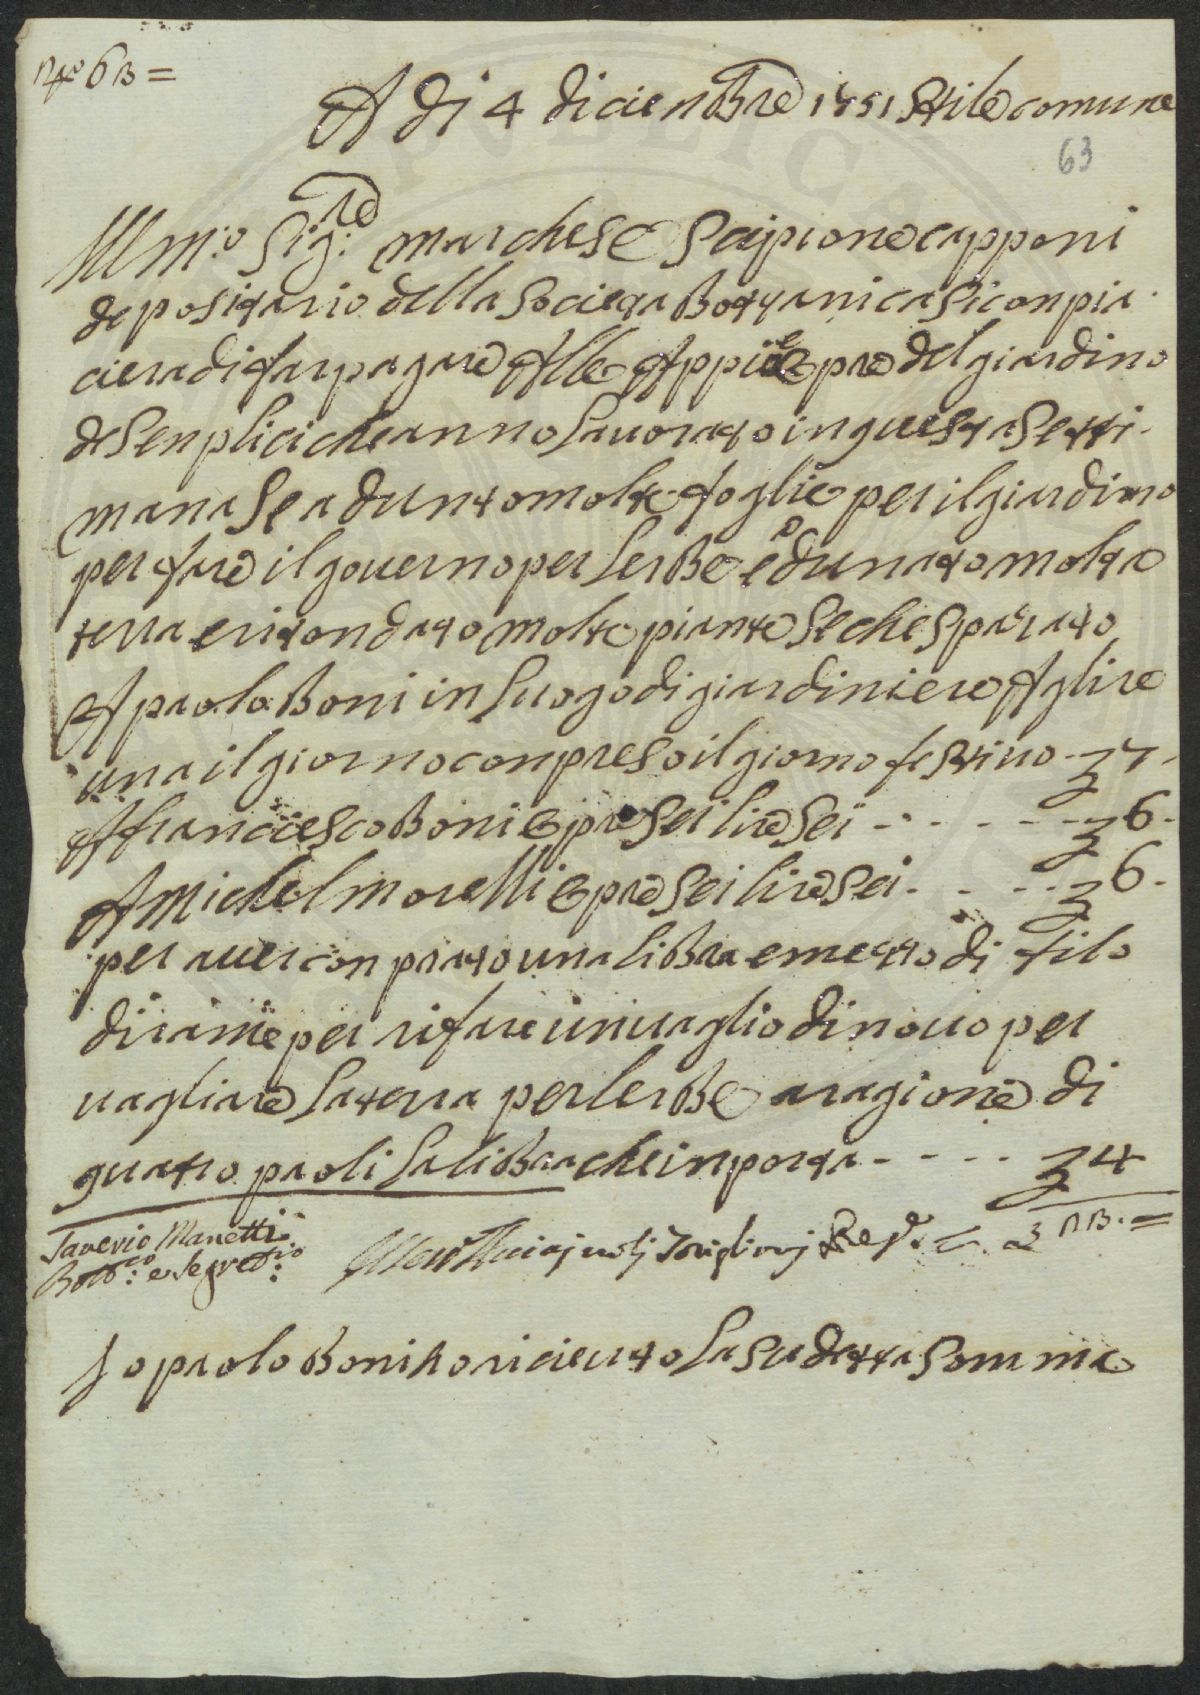 N.º 63 =
A di 4 diciembre 1751 Stile comune
63
Illm:o Sig:re marchese Scipione capponi
depositario della Societa Bottanica si conpia
ciera di far pagare Alle Appie opre del giardino
de Senplici che anno lauorato in questa Setti
mana Se adunto molte foglie per il giardino
per fare il gouerno per lerBe e dunato molta
terra e ritondato molte piante Seche sparato
A paolo Boni in luogo di giardiniere A lire
una il giorno conpreso il giorno festiuo 7
A franciesco Boni opre Sei lire Sei - - - - - 6 -
A Michel morelli opre Sei lire Sei - - - - 6 -
per auer conprato una liBra e mezzo di filo
di rame per rifare un uaglio di nouo per
uagliare la terra per lerBe a ragione di
quatro paoli la liBra che inporta - - - - 4
Saverio Manetti
Bott:co e Segret:io
23. =
Io paolo Boni ho riceuuto la Sudetta Somma